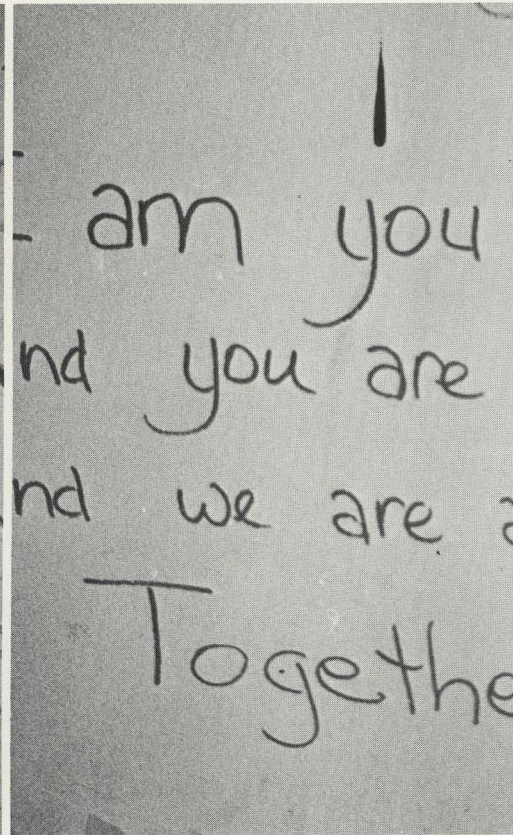 am you
nd you are
nd we are a
Togethe